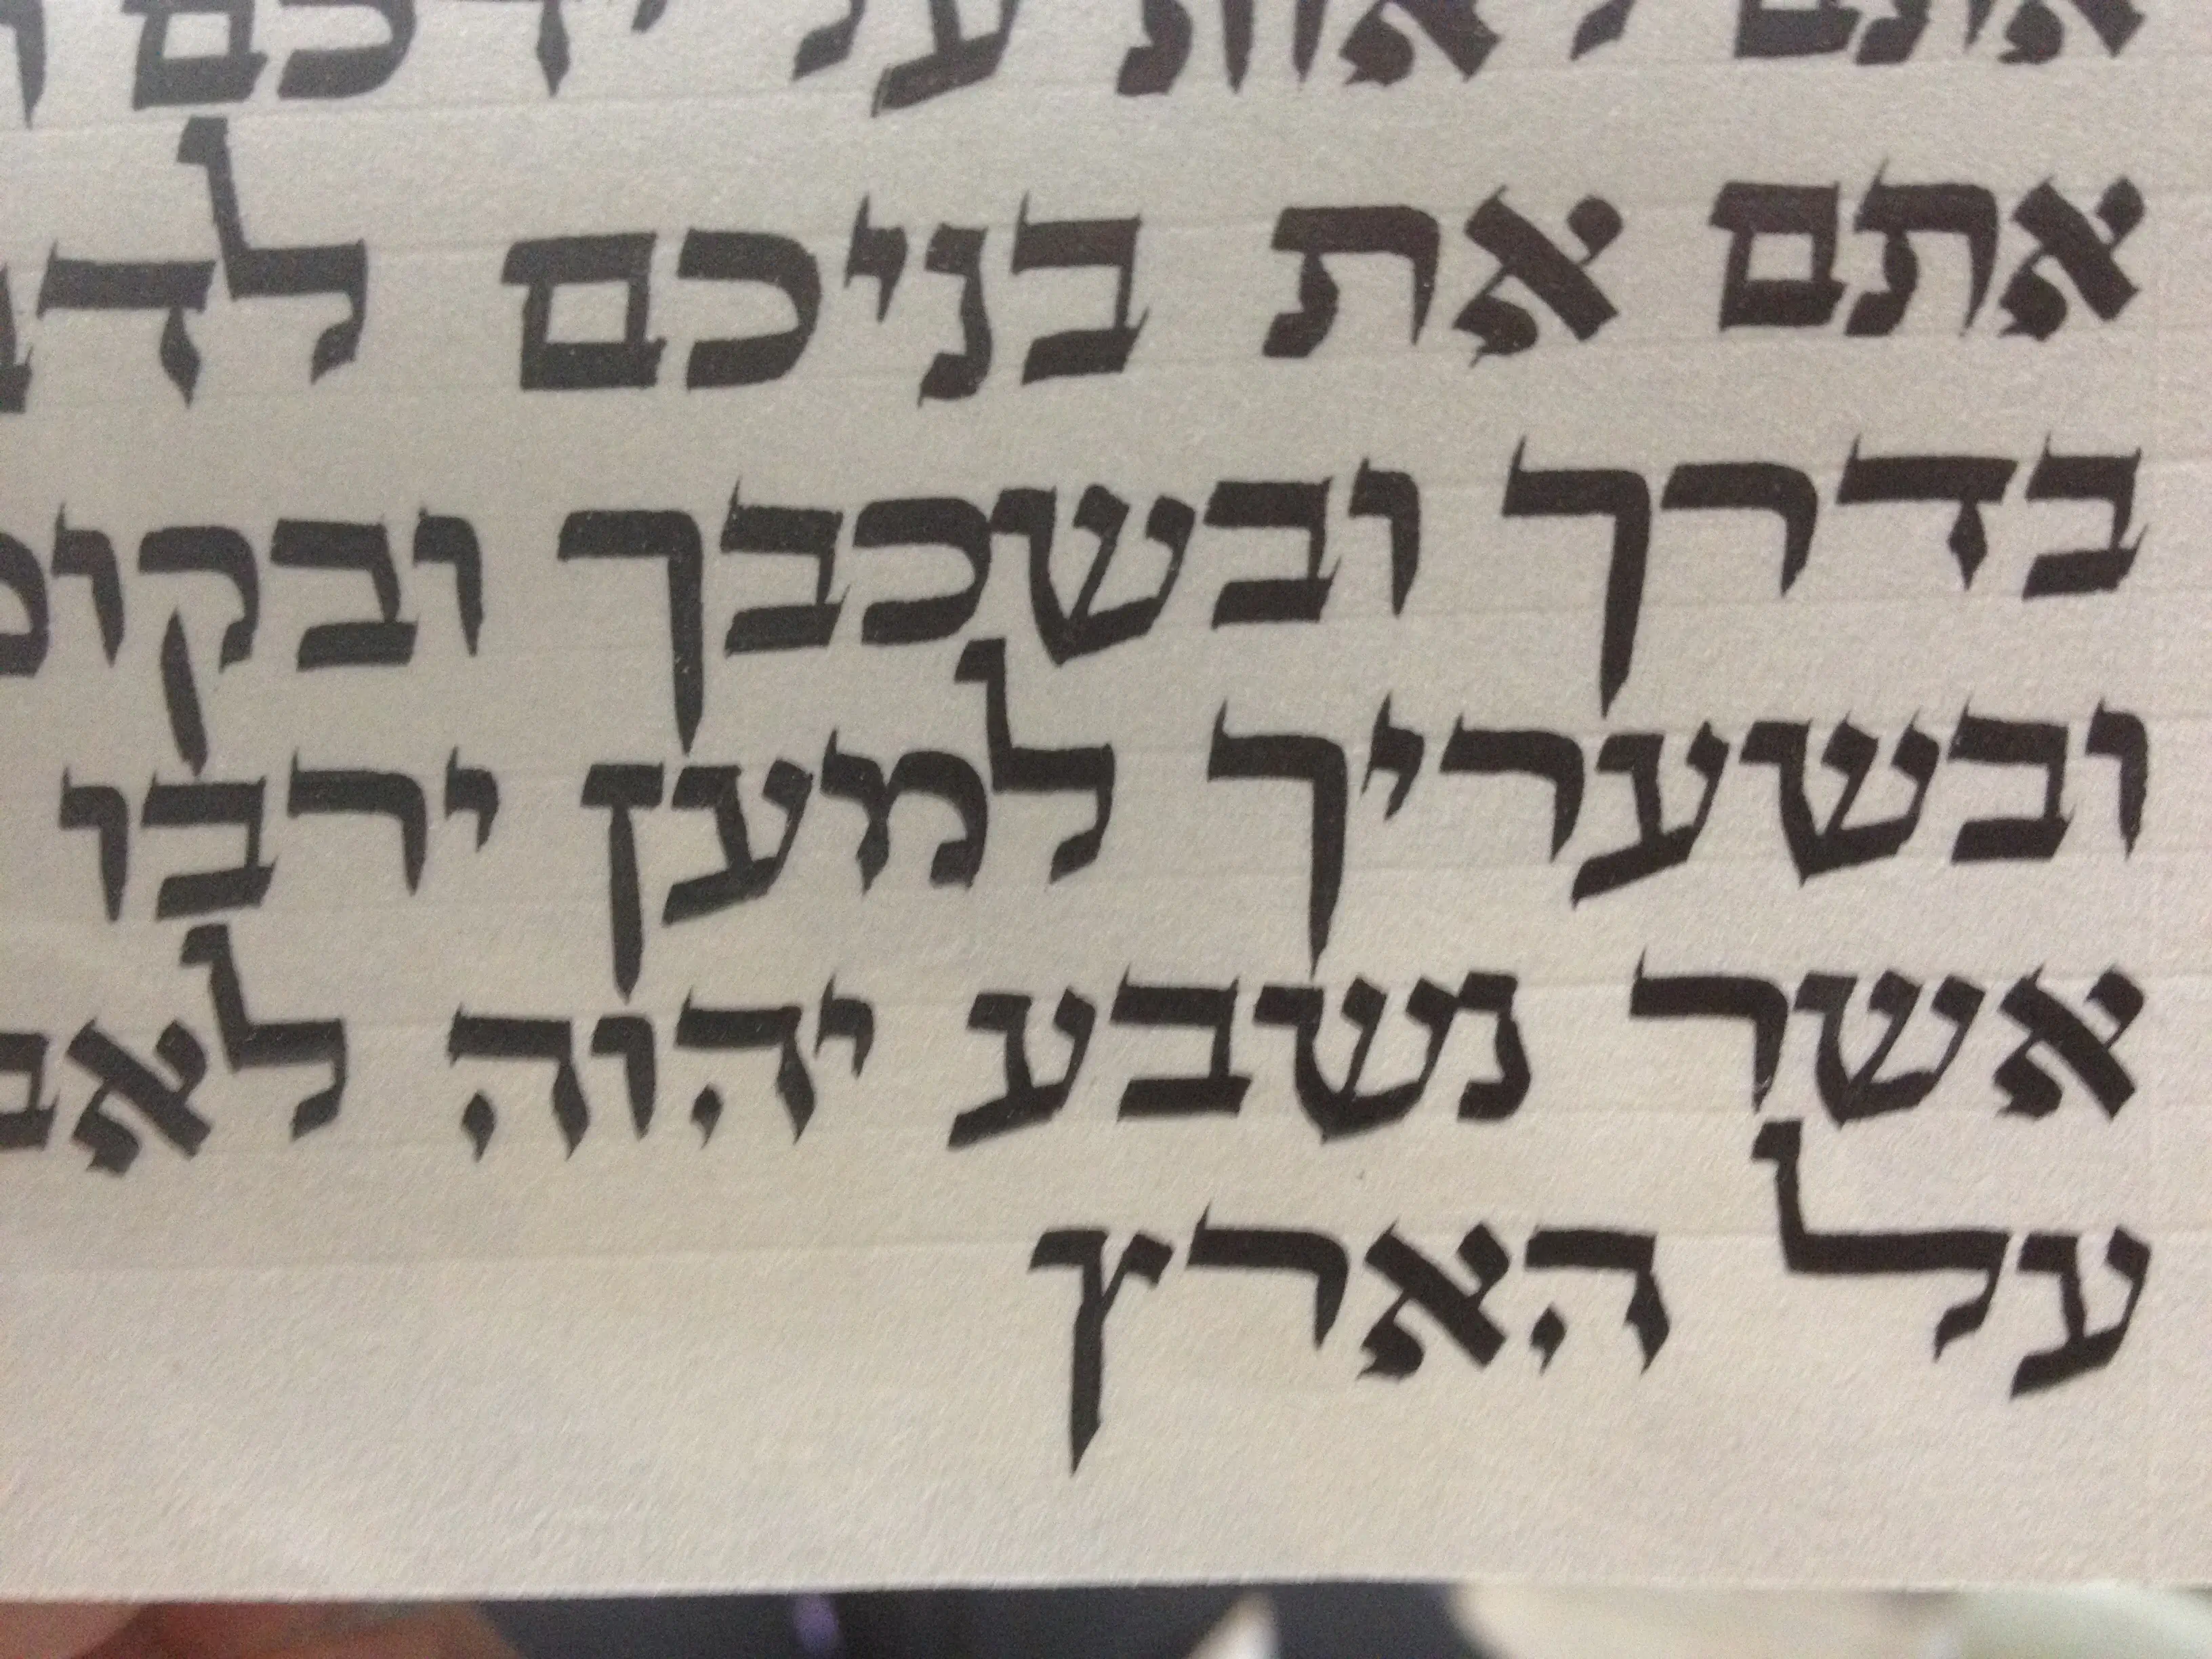 אתם לאות על ידכם
אתם את בניכם
בדרך ובשכבך
ובשעריך למען ירבו
אשר נשבע יהוה
על הארץ